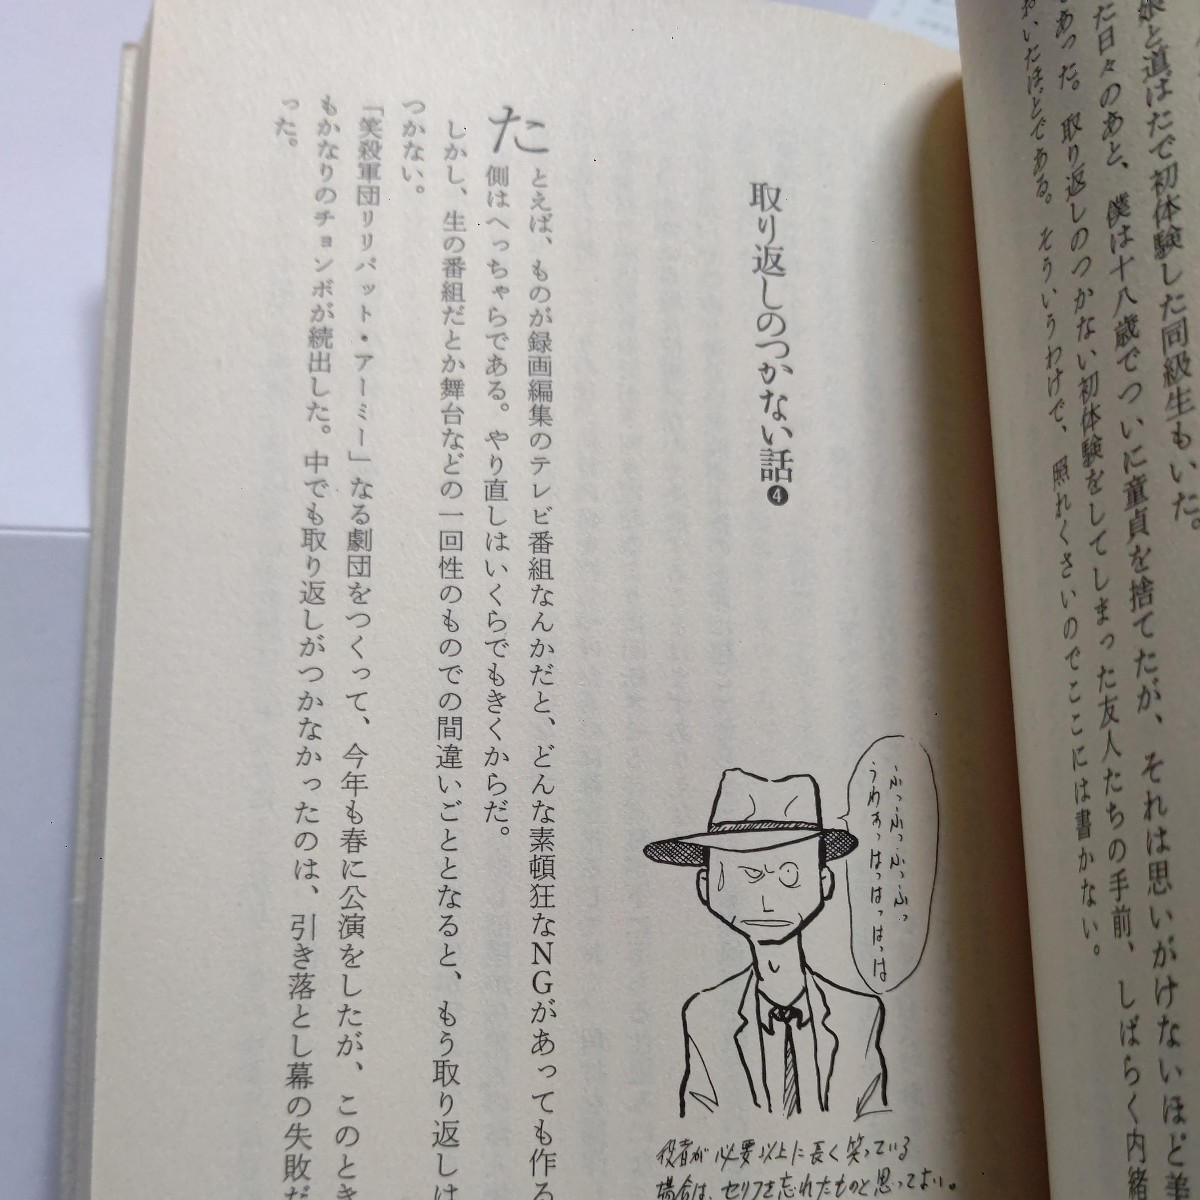 娘と道ばたで初体験した同級生もいた。
た日々のあと、僕は十八歳でついに童貞を捨てたが、それは思いがけないほど羊
であった。取り返しのつかない初体験をしてしまった友人たちの手前、しばらく内緒
おいたほどである。そういうわけで、照れくさいのでここには書かない。
取り返しのつかない話❹
ふっふっふっふっふっ
うわぁっはっはっはっはっは
役者が必要以上に長く笑っている
場合は、セリフを忘れたものと思ってよい。
たとえば、ものが録画編集のテレビ番組なんかだと、どんな素頓狂なNGがあっても作る
側はへっちゃらである。やり直しはいくらでもきくからだ。
しかし、生の番組だとか舞台などの一回性のものでの間違いごととなると、もう取り返しは
つかない。
「笑殺軍団リリパット・アーミー」なる劇団をつくって、今年も春に公演をしたが、このとき
もかなりのチョンボが続出した。中でも取り返しがつかなかったのは、引き落とし幕の失敗だ
った。